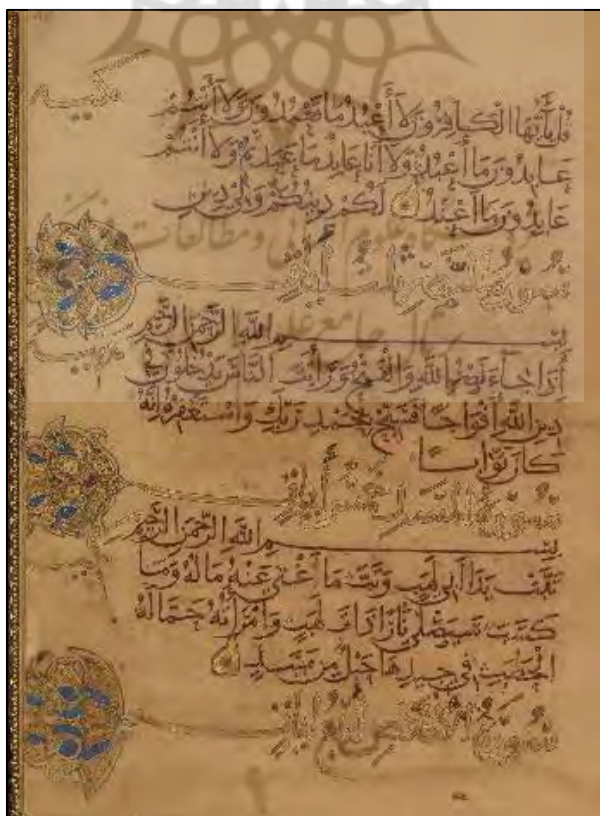 قل يأيها الكافرون لا أعبد ما تعبدون ولا أنتم
عابدون ما أعبد ولا أنا عابد ما عبدتم ولا أنتم
عابدون ما أعبد لكم دينكم ولي دين
علوم انسانی و مطالعات
سورة
بسم الله الرحمن الرحيم
جامع علوم
إذا جاء نصر الله والفتح ورأيت الناس يدخلون في
دين الله أفواجا فسبح بحمد ربك واستغفره إنه
كان توابا
سورة المسد خمس آيات
بسم الله الرحمن الرحيم
تبت يدا أبي لهب وتب ما أغنى عنه ماله وما
كسب سيصلى نارا ذات لهب وامرأته حمالة
الحطب في جيدها حبل من مسد
سورة